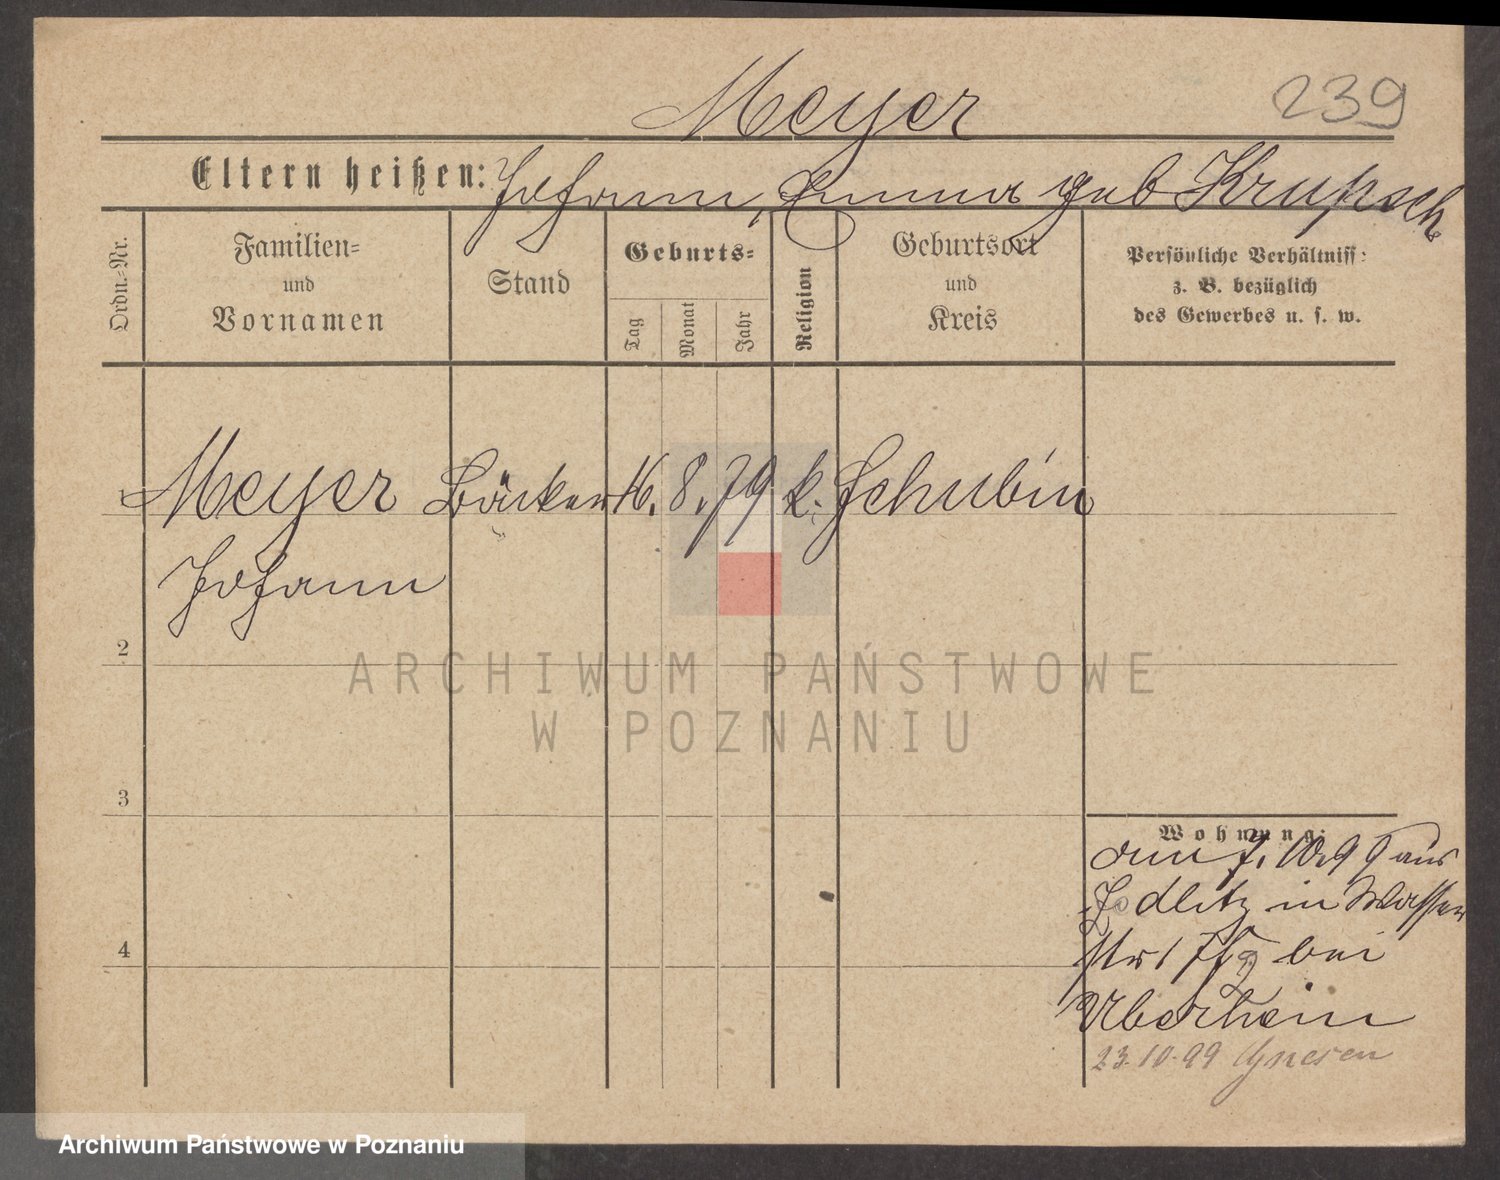 Meyer 239
Eltern heißen: Johann, Emma geb Krupsch
Ordn.=Nr.
Familien=
und
Vornamen
Stand
Geburts=
Tag
Monat
Jahr
Religion
Geburtsort
und
Kreis
Persönliche Verhältniss:
z. B. bezüglich
des Gewerbes u. s. w.
Meyer Bäcker 16. 8. 79 k. Schubin
Johann
2
3
4
Wohnung:
am 7. 10. 99 aus
Jedlitz in Wasser
str bei
23.10.99 Gnesen
ARCHIWUM PAŃSTWOWE
W POZNANIU
Archiwum Państwowe w Poznaniu